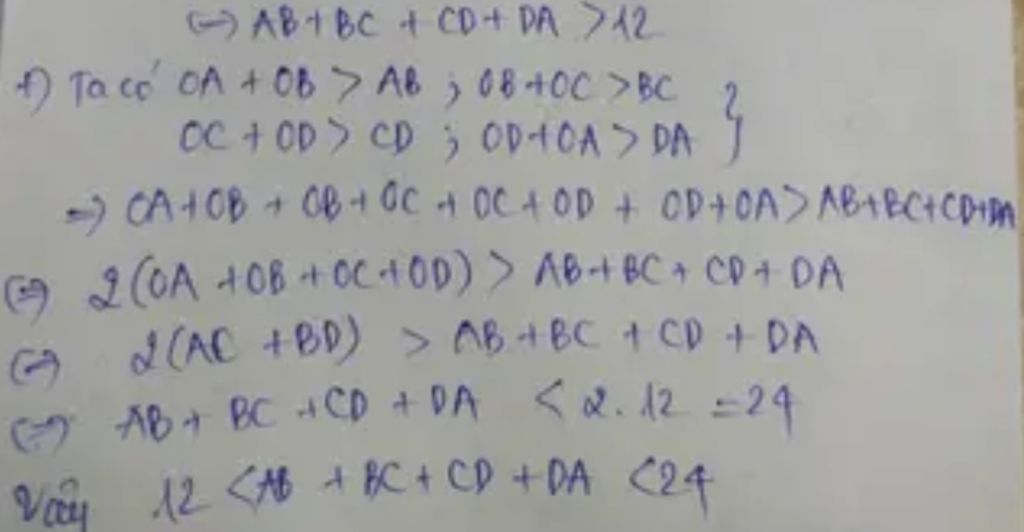 (=) AB + BC + CD + DA > 12
+) Ta có OA + OB > AB ; OB + OC > BC }
OC + OD > CD ; OD + OA > DA
=) OA + OB + OB + OC + OC + OD + OD + OA > AB + BC + CD + DA
(=) 2(OA + OB + OC + OD) > AB + BC + CD + DA
(=) 2(AC + BD) > AB + BC + CD + DA
(=) AB + BC + CD + DA < 2.12 = 24
Vậy 12 < AB + BC + CD + DA < 24